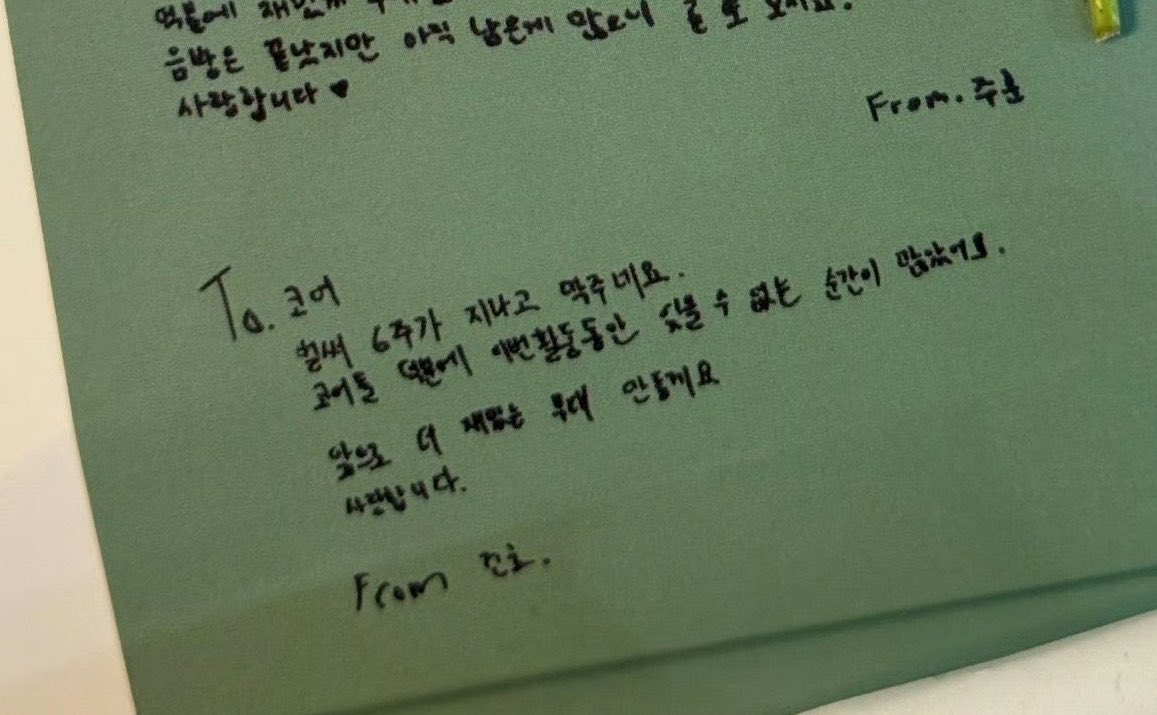 덕분에 재밌게
음방은 끝낫지만 아직 남은게 많으니
사랑합니다 ♥
From. 주훈
To. 코어
벌써 6주가 지나고 막주네요.
코어들 덕분에 이번활동동안 잊을 수 없는 순간이 많았어요.
앞으로 더 재밌는 무대 만들게요
사랑합니다.
From 건호.